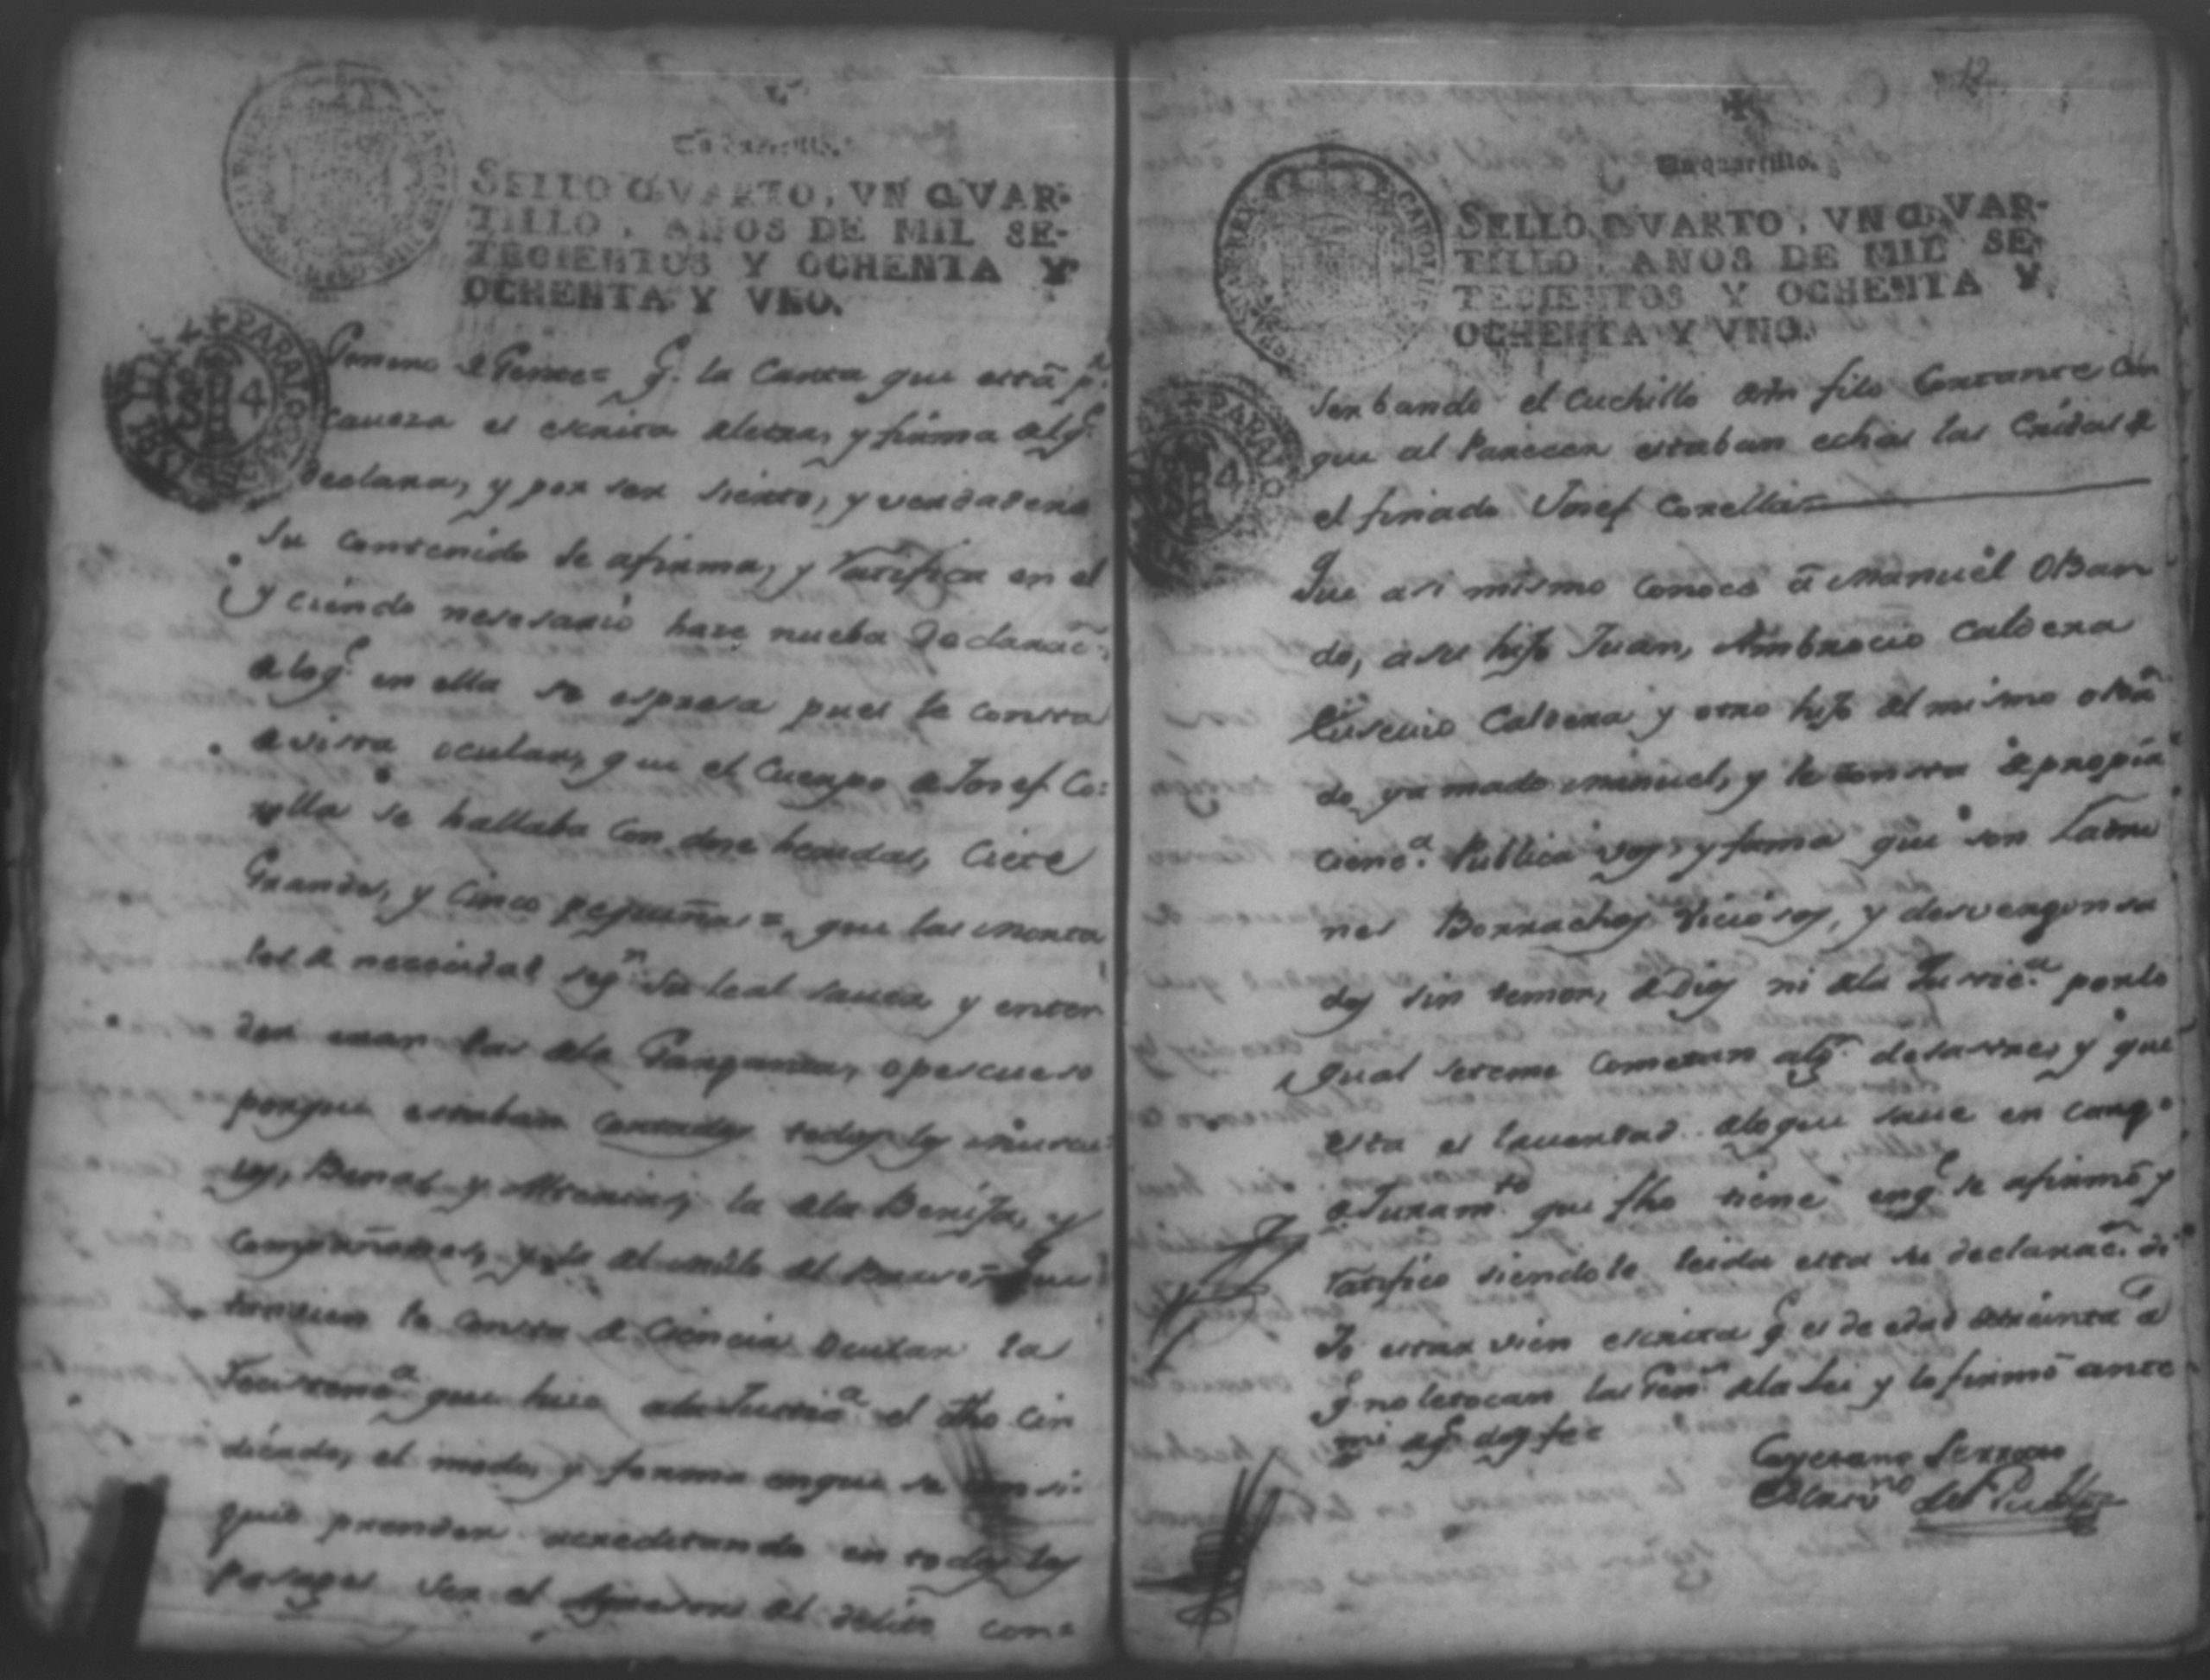 Un quartillo.
SELLO QVARTO, VN QVAR-
TILLO, AÑOS DE MIL SE-
TECIENTOS Y OCHENTA Y
OCHENTA Y VNO.
que la Carta que está pr.
caueza es escrita de letra, y firma del q.e
declara, y por ser sierto, y verdadero
Su contenido se afirma, y ratifica en el
y ciendo nesesario haze nueba Declarac.n
a lo q.e en ella se espresa pues le consta
a vista ocular, que el Cuerpo de Josef Co-
rella se hallaba con dose heridas, Ciete
Grandes, y Cinco pequeñas = que las morta
les de necesidad seg.n su leal sauer y enten
der eran las de la Garganta, o pescueso
porque estaban cortados todos los muscu
los, Benas y Arterias, la de la Berija, y
Compañones, y la del
tambien le consta de Ciencia Ocular la
que hiso a la Justic.a el dho Cin
dicado, el modo, y forma en que se consi-
guio prender acreditando en todos los
Pasages ser el Agresor del delito con=
12
Un quartillo.
SELLO QVARTO, VN QVAR-
TILLO, AÑOS DE MIL SE-
TECIENTOS Y OCHENTA Y
OCHENTA Y VNO.
serbando el Cuchillo sin filo Cortante Con
que al Parecer estaban echas las eridas de
el finado Josef Corella=
Que asi mismo conoce á Manuel Oban
do, a su hijo Juan, Ambrocio Caldera
Eusevio Caldera y otro hijo del mismo Obã
do yamado Manuel, y le consta de propia
cienc.a Publica vos, y fama que son Ladro
nes Borrachos Viciosos, y desvergonsa
dos sin temor, a Dios ni a la Justic.a por lo
qual se teme cometan alg.n desastre, y que
esta es la verdad de lo que saue en carg.o
de Juram.to que fho tiene en q.e se afirmó y
ratifico siendole leida esta su declarac.n di
Jo estar vien escrita q.e es de edad de treinta a.s
q.e no le tocan las Gen.s de la Lei y lo firmó ante
mi de q.e doy fe=
Cayetano Serrano
Esciv.no del Pub.co